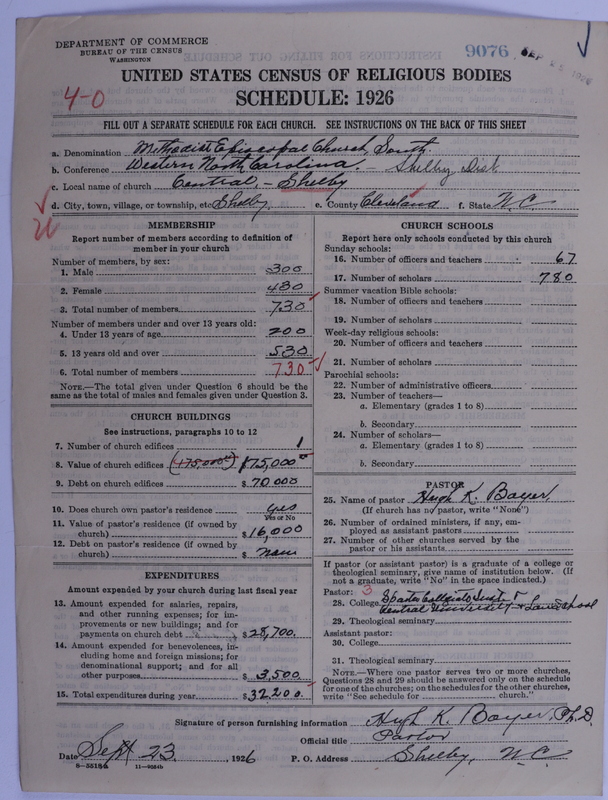 DEPARTMENT OF COMMERCE
BUREAU OF THE CENSUS
WASHINGTON
9076
UNITED STATES CENSUS OF RELIGIOUS BODIES
SCHEDULE: 1926
4-0
FILL OUT A SEPARATE SCHEDULE FOR EACH CHURCH. SEE INSTRUCTIONS ON THE BACK OF THIS SHEET
a. Denomination Methodist Episcopal Church, South.
b. Conference Western North Carolina. - Shelby Dist
c. Local name of church Central, - Shelby
d. City, town, village, or township, etc Shelby. e. County Cleveland f. State N.C.
MEMBERSHIP
Report number of members according to definition of member in your church
Number of members, by sex:
1. Male 300
2. Female 430
3. Total number of members 730
Number of members under and over 13 years old:
4. Under 13 years of age 200
5. 13 years old and over 530
6. Total number of members 730
NOTE.—The total given under Question 6 should be the same as the total of males and females given under Question 3.
CHURCH BUILDINGS
See instructions, paragraphs 10 to 12
7. Number of church edifices 1
8. Value of church edifices (475,000) $175,000
9. Debt on church edifices $ 70 000
10. Does church own pastor's residence yes
Yes or No
11. Value of pastor's residence (if owned by church) $16,000
12. Debt on pastor's residence (if owned by church) $ none
EXPENDITURES
Amount expended by your church during last fiscal year
13. Amount expended for salaries, repairs, and other running expenses; for improvements or new buildings; and for payments on church debt $28,700.
14. Amount expended for benevolences, including home and foreign missions; for denominational support; and for all other purposes $3,500
15. Total expenditures during year $32,200.
CHURCH SCHOOLS
Report here only schools conducted by this church
Sunday schools:
16. Number of officers and teachers 67
17. Number of scholars 780
Summer vacation Bible schools:
18. Number of officers and teachers
19. Number of scholars
Week-day religious schools:
20. Number of officers and teachers
21. Number of scholars
Parochial schools:
22. Number of administrative officers
23. Number of teachers—
a. Elementary (grades 1 to 8)
b. Secondary
24. Number of scholars—
a. Elementary (grades 1 to 8)
b. Secondary
PASTOR
25. Name of pastor Hugh K. Boyer
(If church has no pastor, write "None")
26. Number of ordained ministers, if any, employed as assistant pastors
27. Number of other churches served by the pastor or his assistants
If pastor (or assistant pastor) is a graduate of a college or theological seminary, give name of institution below. (If not a graduate, write "No" in the space indicated.)
Pastor: 3
28. College Collegiate Inst. +
Central University +
29. Theological seminary
Assistant pastor:
30. College
31. Theological seminary
NOTE.—Where one pastor serves two or more churches, Questions 28 and 29 should be answered only on the schedule for one of the churches; on the schedules for the other churches, write "See schedule for church."
Signature of person furnishing information Hugh K. Boyer, Ph.D.
Official title Pastor
Date Sept 23, 1926 P. O. Address Shelby, N.C.
8-5518a 11-9264b